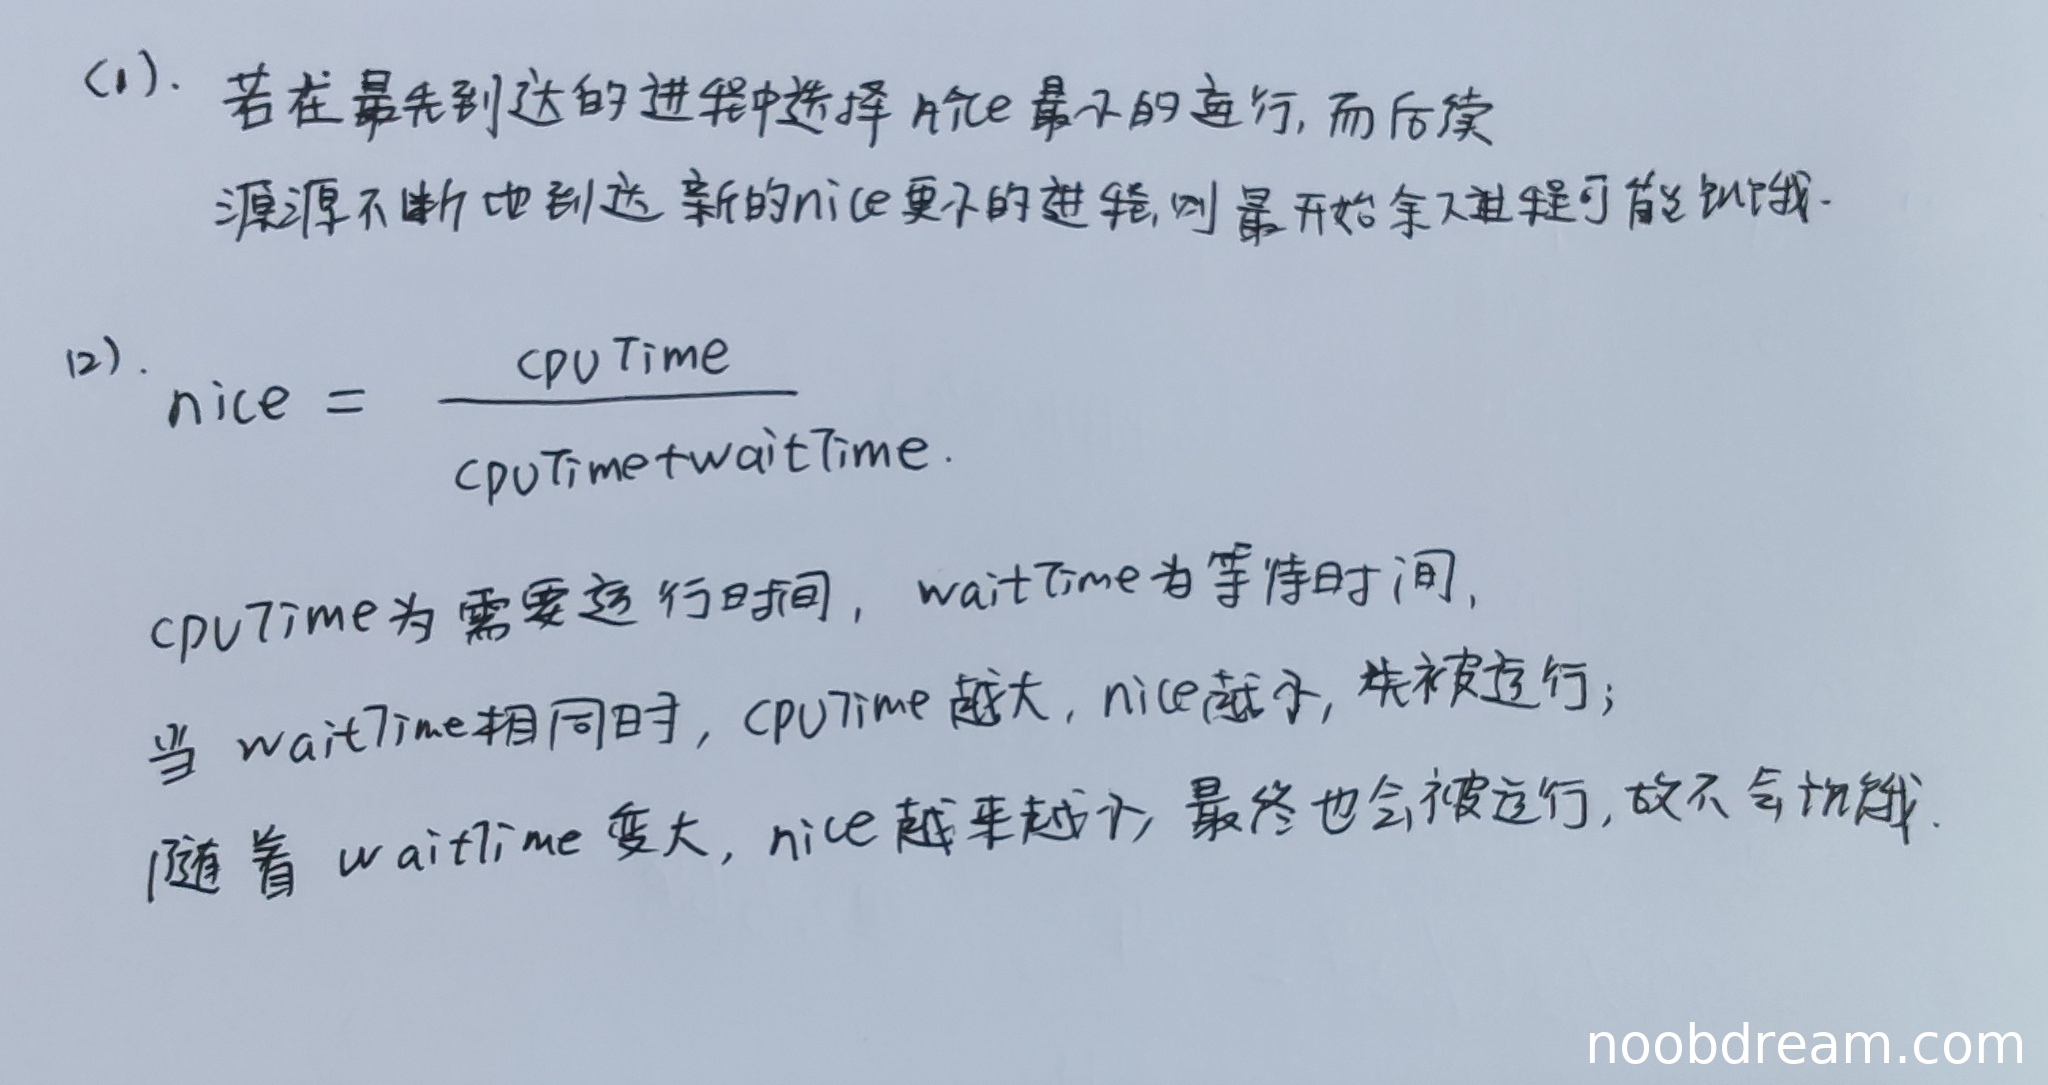 (1). 若在最先到达的进程中选择nice最小的运行, 而后续
源源不断地到达新的nice更小的进程, 则最开始余下进程可能饥饿.
(2). nice = cpuTime
cpuTime+waitTime.
cpuTime为需要运行时间, waitTime为等待时间,
当 waitTime相同时, cpuTime越大, nice越小, 先被运行;
随着 waitTime 变大, nice越来越小, 最终也会被运行, 故不会饥饿.
noobdream.com